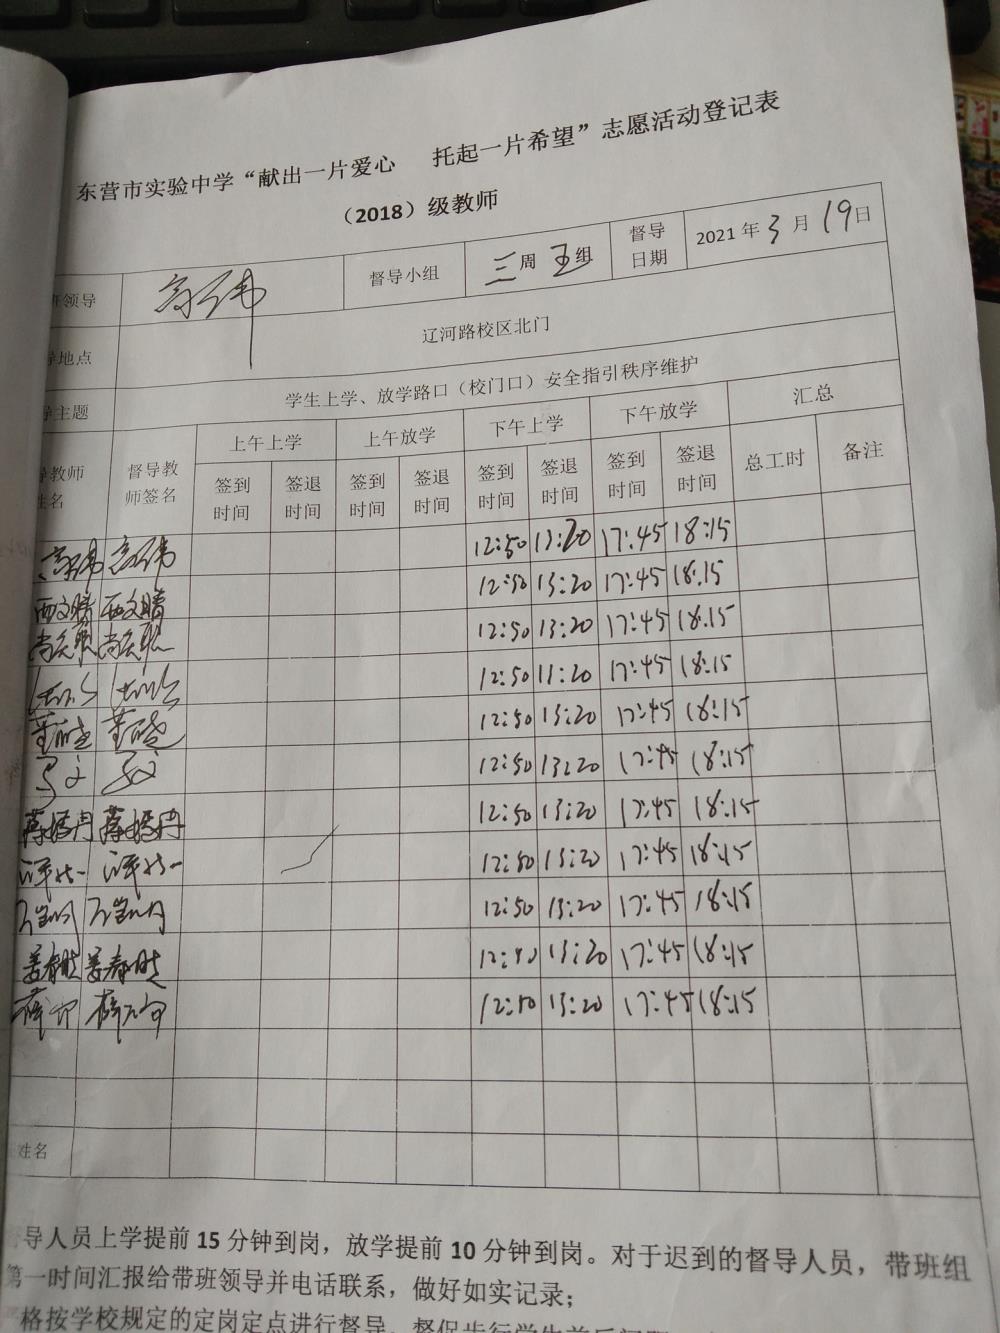 东营市实验中学“献出一片爱心 托起一片希望”志愿活动登记表
（2018）级教师
领导 高伟 督导小组 三周 五组 督导日期 2021年3月19日
地点 辽河路校区北门
主题 学生上学、放学路口（校门口）安全指引秩序维护
教师 督导教师签名 上午上学 上午放学 下午上学 下午放学 汇总
签到时间 签退时间 签到时间 签退时间 签到时间 签退时间 签到时间 签退时间 总工时 备注
高伟 高伟 12:50 13:20 17:45 18:15
西文晴 西文晴 12:50 13:20 17:45 18:15
12:50 13:20 17:45 18:15
12:50 13:20 17:45 18:15
董晓 董晓 12:50 13:20 17:45 18:15
12:50 13:20 17:45 18:15
12:50 13:20 17:45 18:15
12:50 13:20 17:45 18:15
12:50 13:20 17:45 18:15
姜春 姜春 12:50 13:20 17:45 18:15
薛 薛 12:50 13:20 17:45 18:15
姓名
导人员上学提前15分钟到岗，放学提前10分钟到岗。对于迟到的督导人员，带班组
第一时间汇报给带班领导并电话联系，做好如实记录；
格按学校规定的定岗定点进行督导